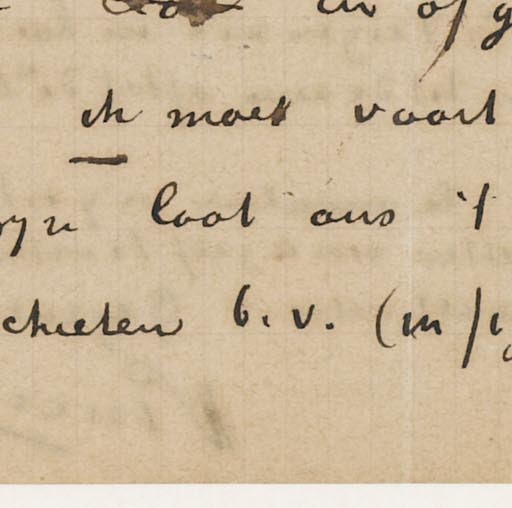 en of g
ik moet voort
zyn laat ons 't
chieten b.v. (in pl